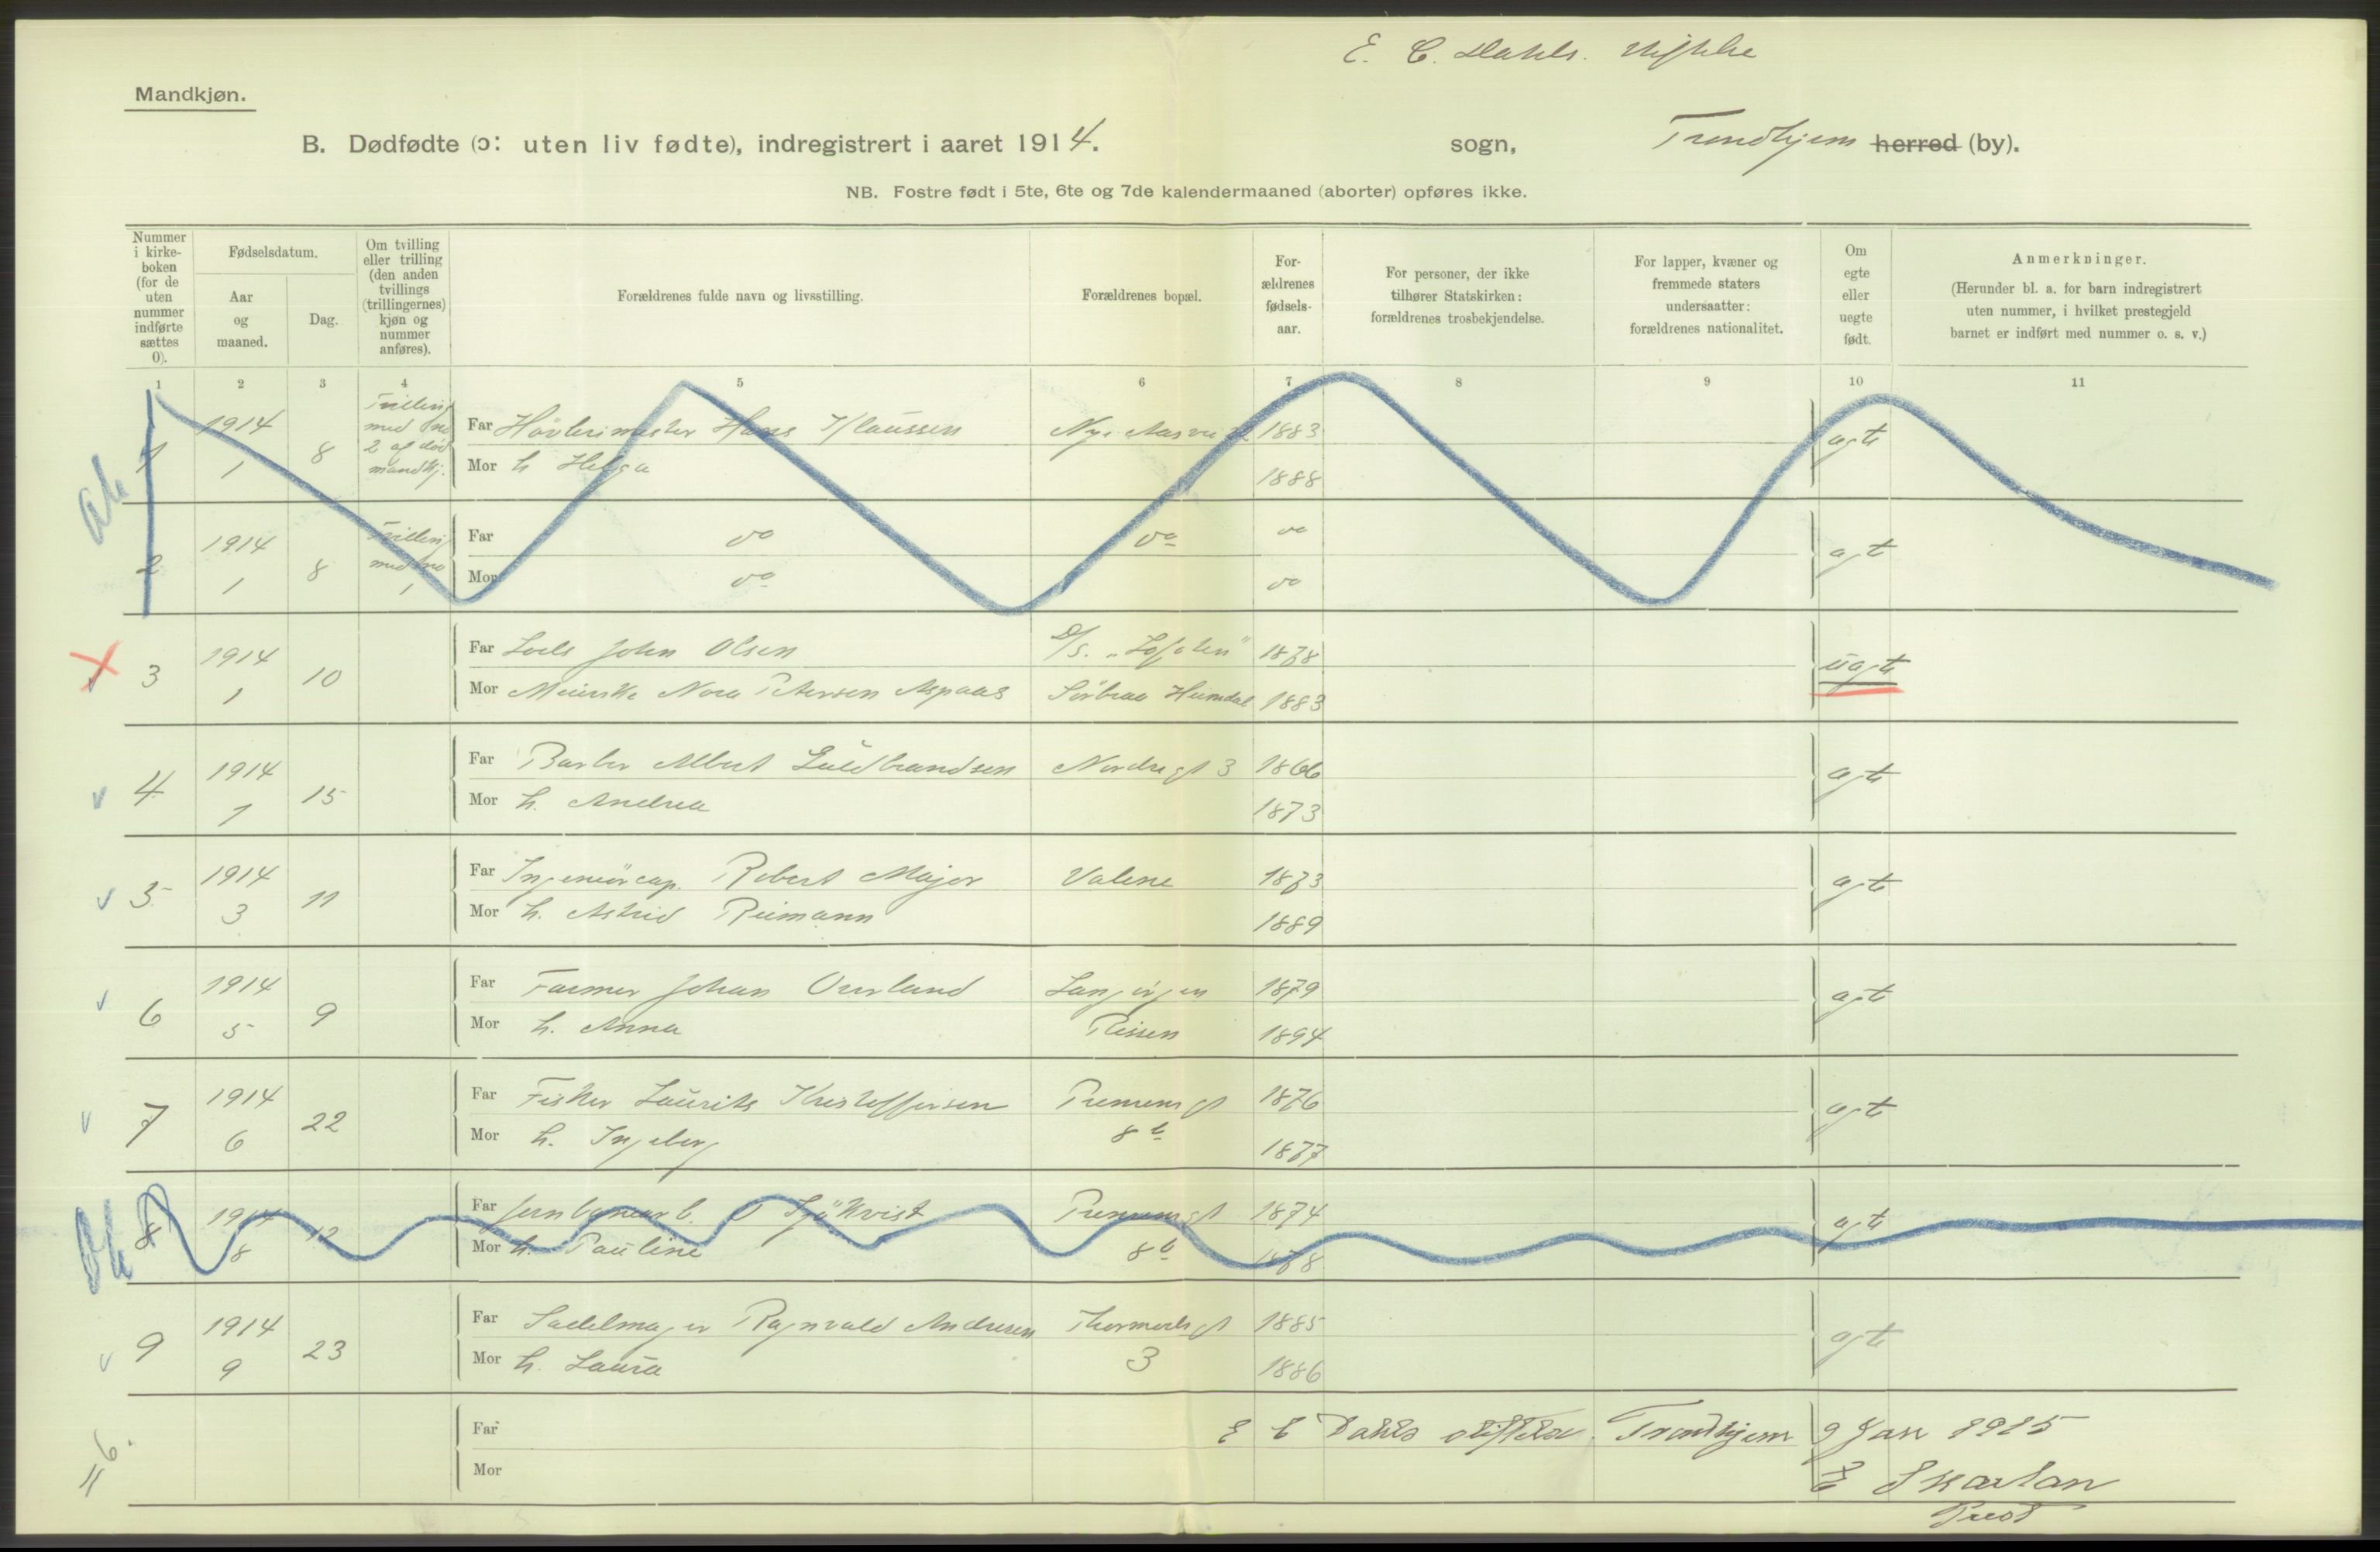 E. C. Dahls. stiftelse
Mandkjøn.
B. Dødfødte (ɔ: uten liv fødte), indregistrert i aaret 1914. sogn, Trondhjem herred (by).
NB. Fostre født i 5te, 6te og 7de kalendermaaned (aborter) opføres ikke.
Nummer
i kirke-
boken
(for de
uten
nummer
indførte
sættes
0).
Fødselsdatum.
Aar
og
maaned.
Dag.
Om tvilling
eller trilling
(den anden
tvillings
(trillingernes)
kjøn og
nummer
anføres).
Forældrenes fulde navn og livsstilling.
Forældrenes bopæl.
For-
ældrenes
fødsels-
aar.
For personer, der ikke
tilhører Statskirken:
forældrenes trosbekjendelse.
For lapper, kvæner og
fremmede staters
undersaatter:
forældrenes nationalitet.
Om
egte
eller
uegte
født.
Anmerkninger.
(Herunder bl. a. for barn indregistrert
uten nummer, i hvilket prestegjeld
barnet er indført med nummer o. s. v.)
1 2 3 4 5 6 7 8 9 10 11
1 1914 1 8
med no
2 af død
mandkj.
Far Hans Klaussen 1883 ægte
Mor h. Helga 1888
2 1914 1 8
med no
1
Far do do do ægte
Mor do do
3 1914 1 10
Far Lods John Olsen D/S. „Lofoten" 1878 uægte
Mor Nora Petersen Aspaas Heimdal 1883
4 1914 1 15
Far Barber Albert Guldbrandsen Nordregt 3 1866 ægte
Mor h. Andrea 1873
5 1914 3 11
Far Ingeniörcap. Robert Major Valene 1873 ægte
Mor h. Astrid Reimann 1889
6 1914 5 9
Far Farmer Johan Overland 1879 ægte
Mor h. Anna Rissen 1894
7 1914 6 22
Far Fisker Laurits Kristoffersen 1876 ægte
Mor h. Ingeborg 8 b 1877
8 1914 8 12
Far Jernbanearb. O Sjökvist 1874 ægte
Mor h. Pauline 8 b 1878
9 1914 9 23
Far Sadelmager Ragnvald Andresen 1885 ægte
Mor h. Laura 3 1886
= 6.
Far E C Dahls stiftelse. Trondhjem 9 Jan 1915
Mor E Skarlan
Prest